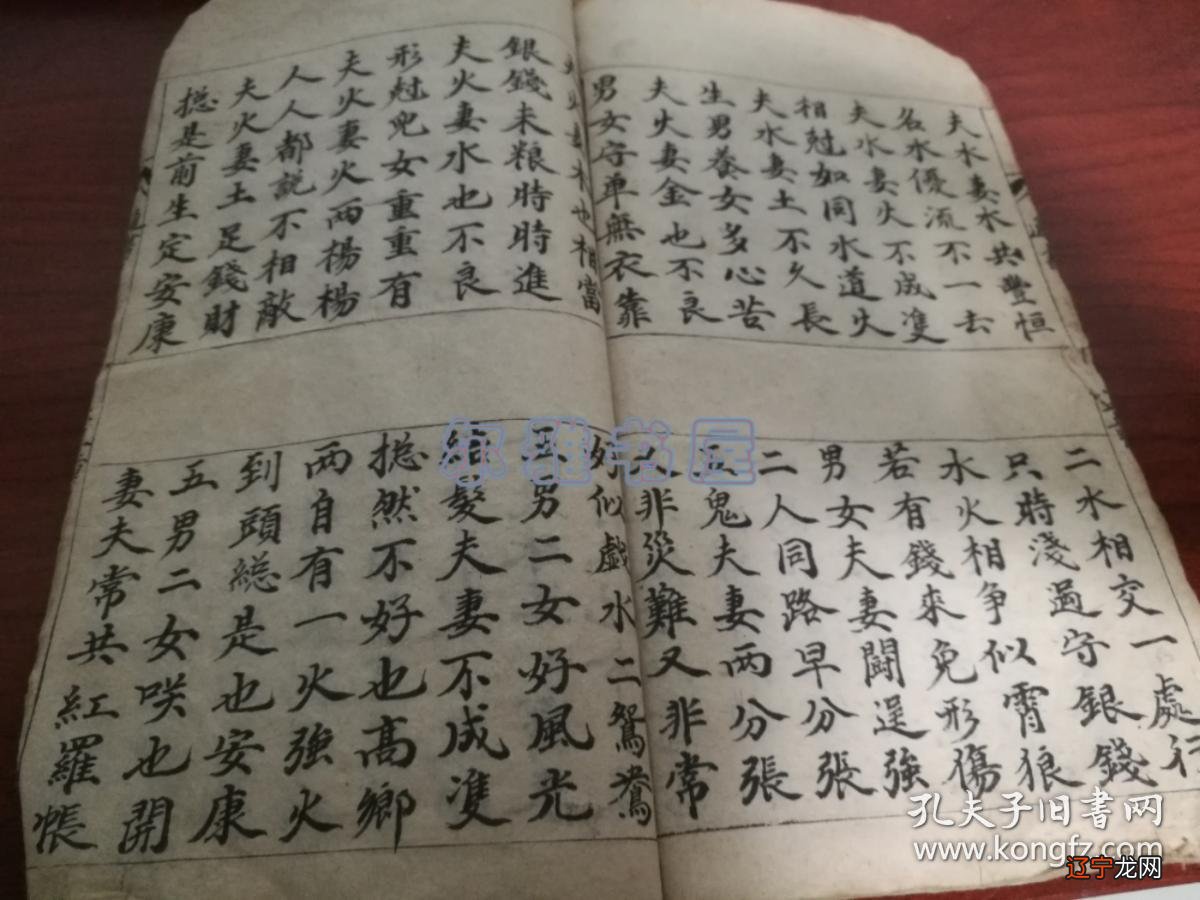 夫水妻水共豐恒
名水優流不一去
夫水妻火不成双
相尅如同水道火
夫水妻土不久長
生男養女多心苦
夫火妻金也不良
男女守单無衣靠
夫火妻木也相當
銀錢米粮時時進
夫火妻水也不良
形尅兒女重重有
夫火妻火兩楊楊
人人都説不相敵
夫火妻土足錢財
揔是前生定安康
二水相交一處行
只時淺過守銀錢
水火相争似霄狼
若有錢來免形傷
男女夫妻鬪逞強
二人同路早分張
五鬼夫妻兩分張
人非災難又非常
好似戲水二鴛鴦
五男二女好風光
結髮夫妻不成双
揔然不好也高鄉
兩自有一火強火
到頭總是也安康
五男二女咲也開
妻夫常共紅羅帳
尔雅书屋
孔夫子旧书网
www.kongfz.com
辽宁龙网